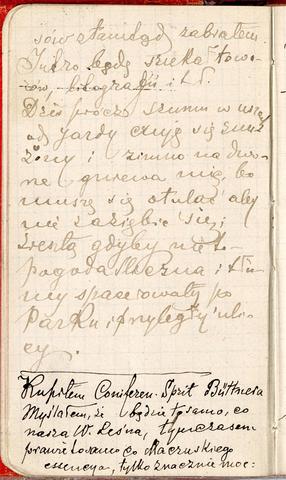 sów stamtąd zabrałem
Jutro będę szukał towa-
rów, bilogradji i t.d.
Dziś prócz szumu w uszach
od jazdy czuję się znu-
żony i zimno na dwo-
rze gniewa mię, bo
muszę się otulać aby
nie zaziębić się;
zresztą gdyby nie to
pogoda śliczna i tłu-
my spacerowały po
Parku i przyległych uli-
cy.
Kupiłem Coniferen-Sprit Büttnera
Myślałem, że będzie to samo, co
nasza W. Leśna, tymczasem
prawie to samo co Maczuskiego
essencya, tylko znacznie moc: